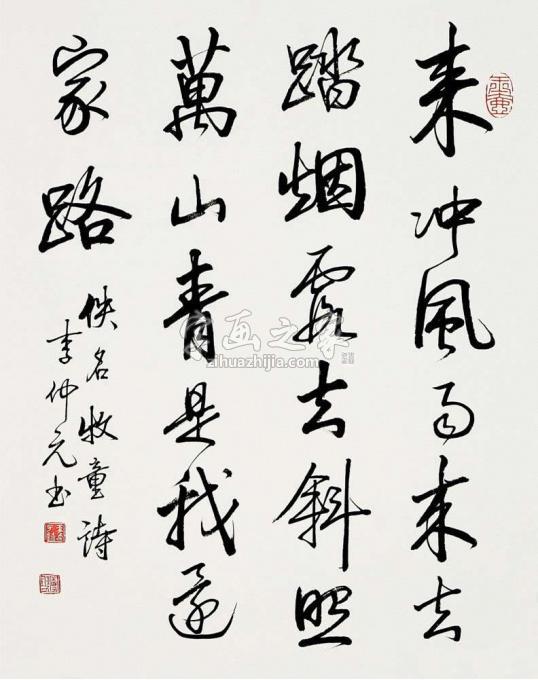 来冲風雨来去
踏烟霞去斜照
萬山青是我還
家路
佚名牧童詩
李仲元书
字画之家
zihuazhijia.com